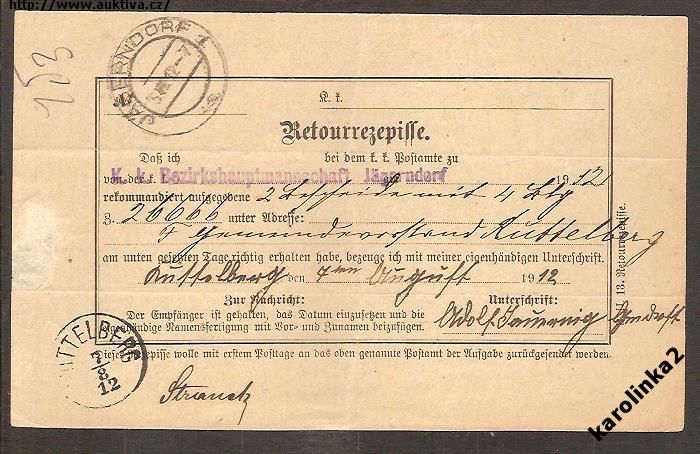 http://www.auktiva.cz/
153
JÄGERNDORF 1
K. k.
Retourrezepisse.
Daß ich bei dem k. k. Postamte zu
von der k. k. am 1912
K. k. Bezirkshauptmannschaft Jägerndorf
rekommandiert aufgegebene 2 Bescheide mit 4 Blg
Z. 26666 unter Adresse:
Gemeindevorstand Kuttelberg
am unten gesetzten Tage richtig erhalten habe, bezeuge ich mit meiner eigenhändigen Unterschrift.
Kuttelberg den 7ten August 1912
Zur Nachricht: Unterschrift:
Der Empfänger ist gehalten, das Datum einzusetzen und die
eigenhändige Namensfertigung mit Vor- und Zunamen beizufügen.
Adolf
Diese Retourrezepisse wolle mit erstem Postage an das oben genannte Postamt der Aufgabe zurückgesendet werden.
13. Retourrezepisse.
KUTTELBERG
7/8
12
karolinka2